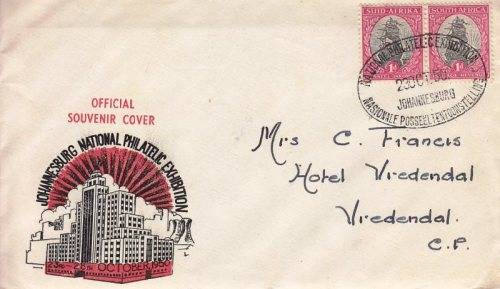 SUID-AFRIKA
SOUTH AFRICA
1D
1D
NATIONAL PHILATELIC EXHIBITION
23 OCT. 50
JOHANNESBURG
NASIONALE POSSEËLTENTOONSTELLING
OFFICIAL
SOUVENIR COVER
JOHANNESBURG NATIONAL PHILATELIC EXHIBITION
23RD - 28TH OCTOBER, 1950
Mrs C. Francis
Hotel Vredendal
Vredendal.
C.P.